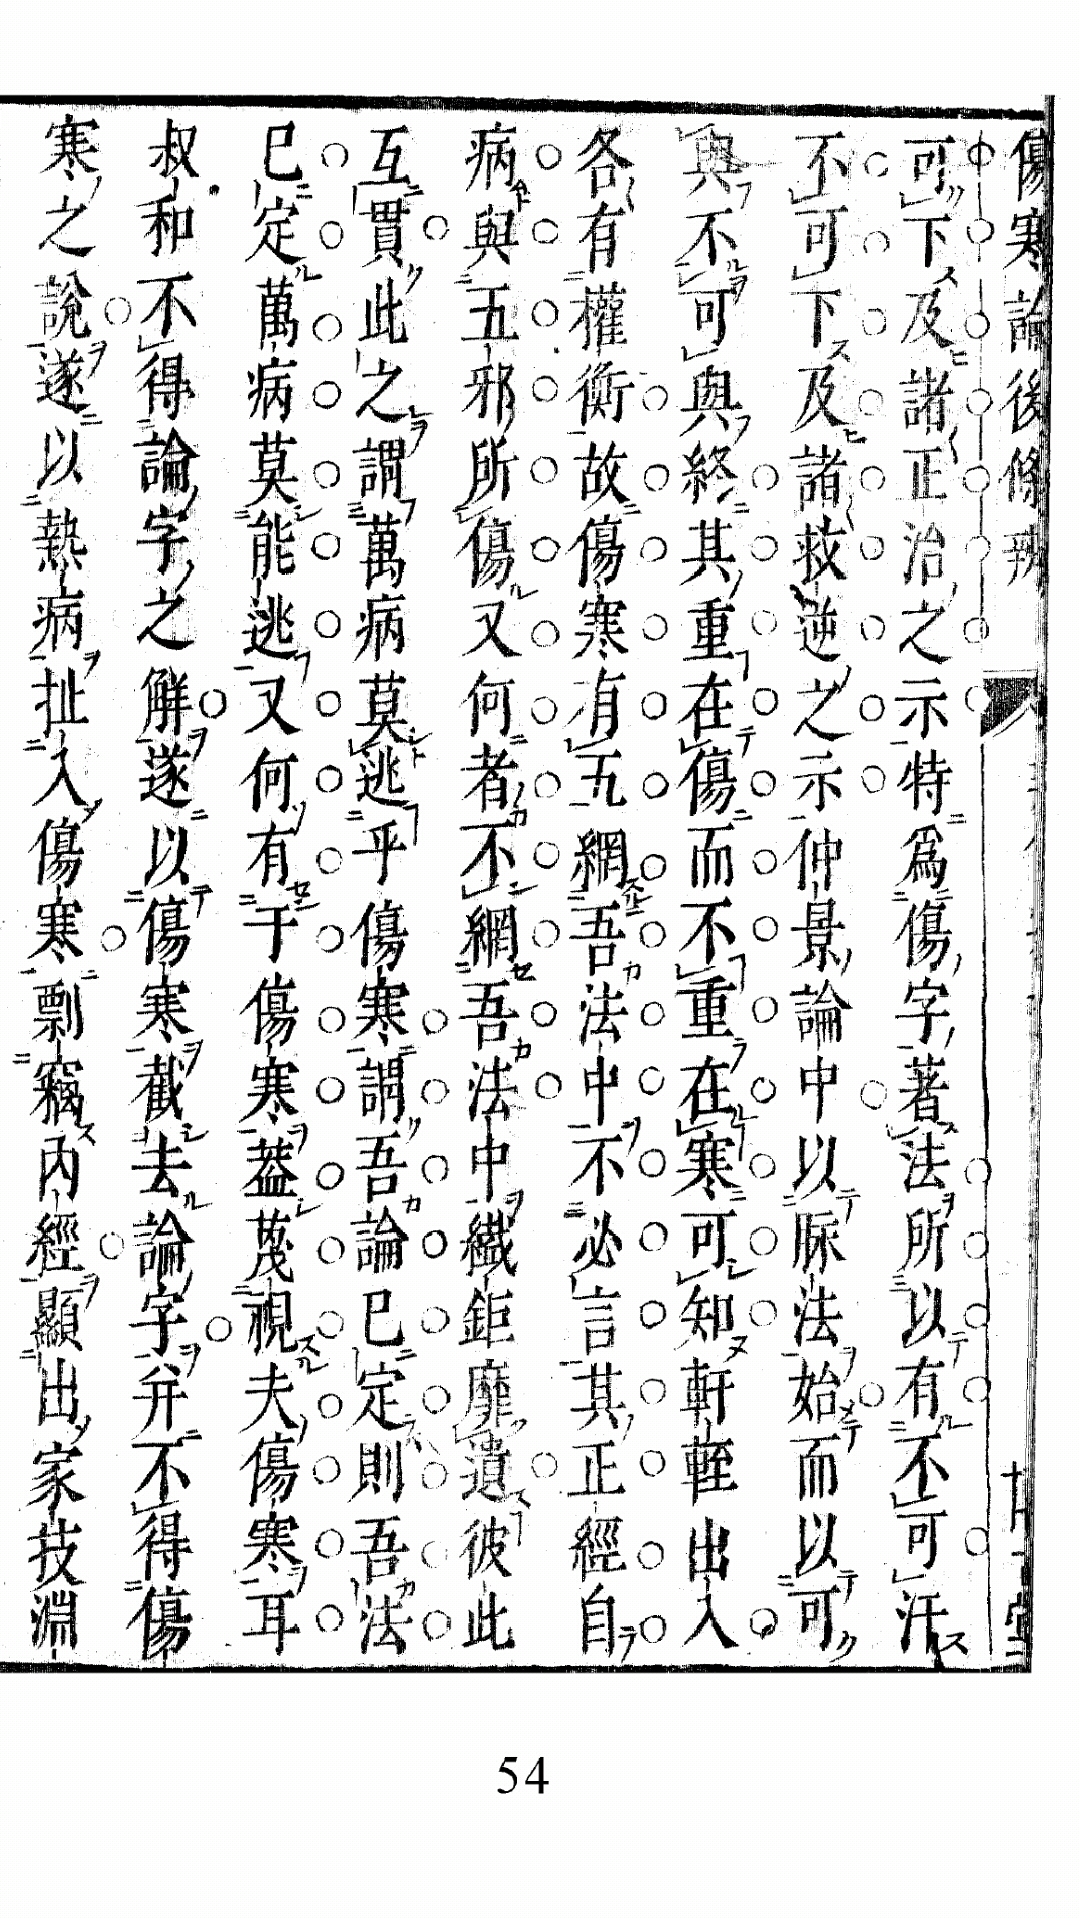 傷寒論後條辨
可下及諸正治之示特爲傷字著法所以有不可汗
不可下及諸救逆之示仲景論中以脈法始而以可
與不可與終其重在傷而不重在寒可知軒輊出入
各有權衡故傷寒有五網吾法中不必言其正經自
病與五邪所傷又何者不網吾法中纖鉅靡遺彼此
互貫此之謂萬病莫逃乎傷寒謂吾論已定則吾法
已定萬病莫能逃又何有于傷寒葢蔑視夫傷寒耳
叔和不得論字之解遂以傷寒截去論字弁不得傷
寒之說遂以熱病扯入傷寒剽竊內經顯出家技淵
54